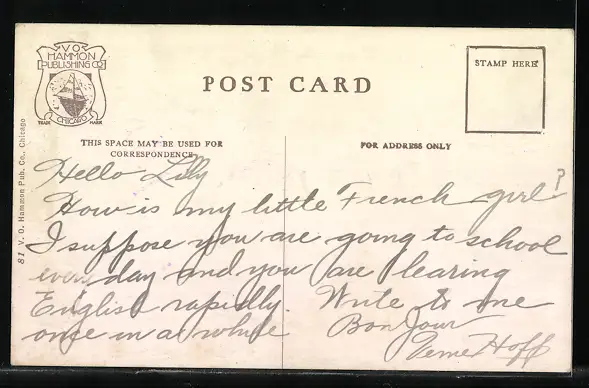 V.O.
HAMMON
PUBLISHING CO
CHICAGO
TRADE MARK
POST CARD
STAMP HERE
THIS SPACE MAY BE USED FOR
CORRESPONDENCE
FOR ADDRESS ONLY
81 V. O. Hammon Pub. Co., Chicago
Hello Lilly
How is my little French girl?
I suppose you are going to school
every day and you are learing
English rapidly. Write to me
once in a while Bon Jour
Hoff